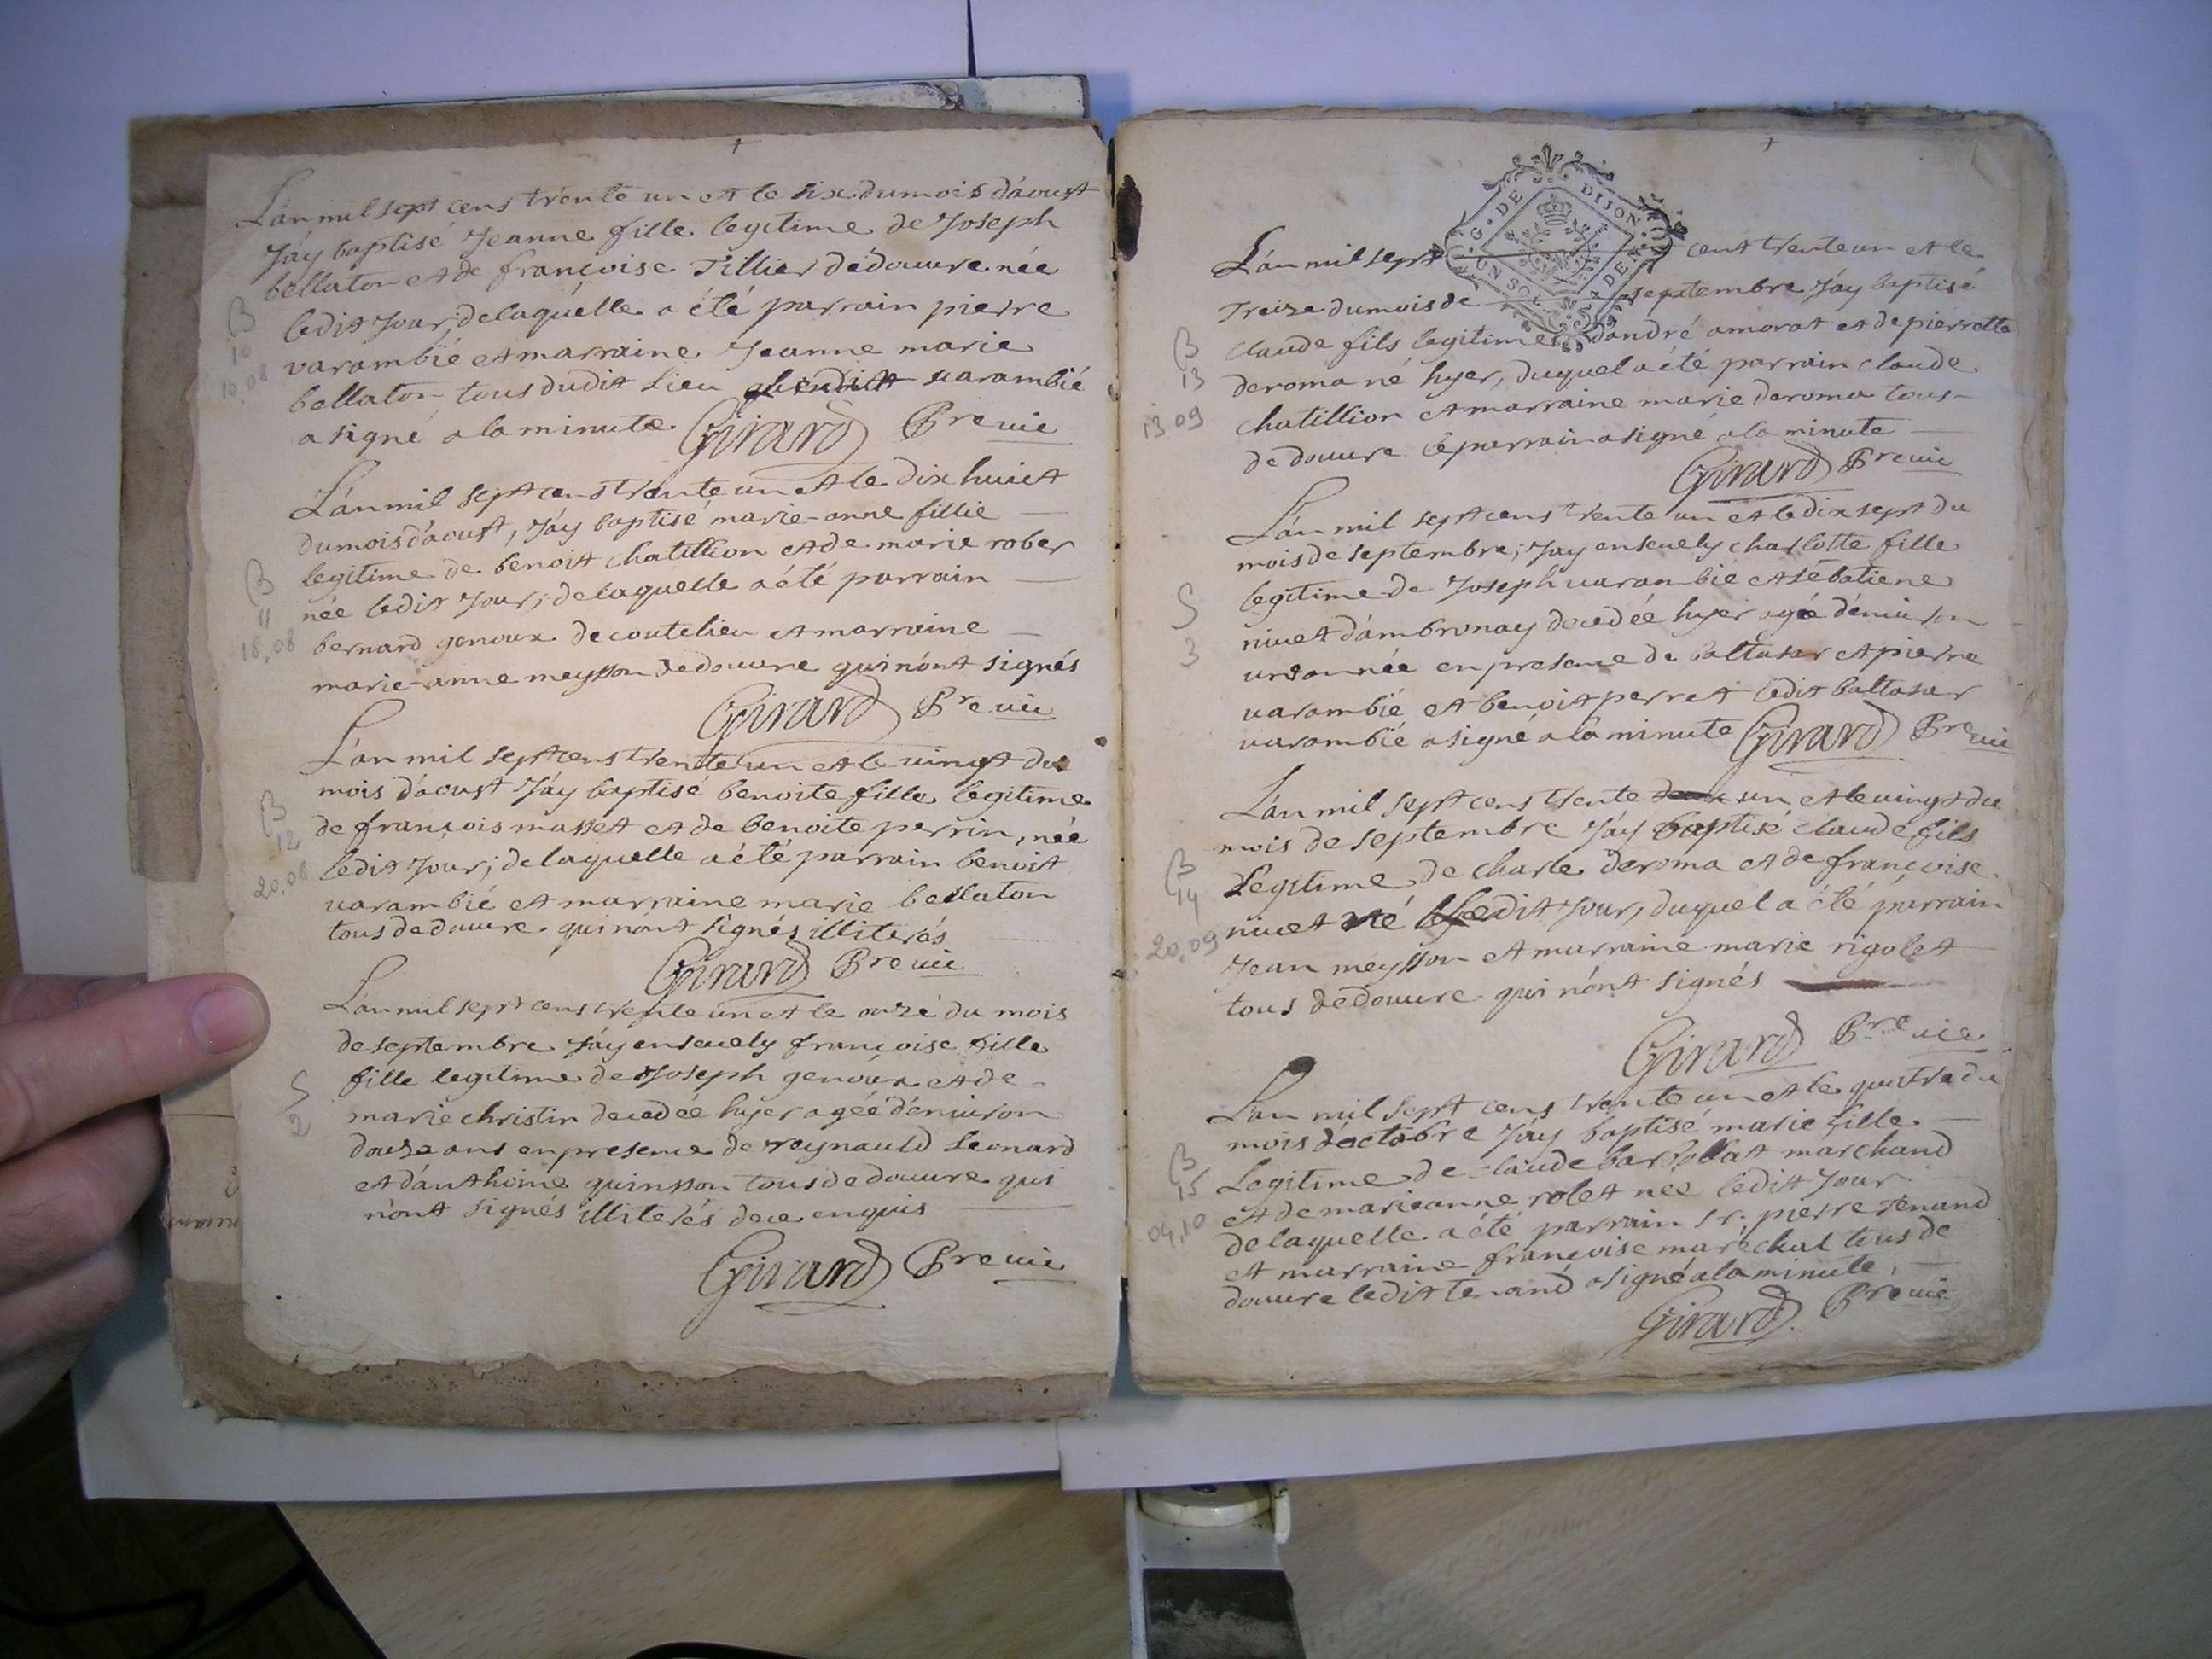 L'an mil sept cens trente un et le six du mois d'aoust
J'áy baptisé Jeanne fille legitime de Joseph
bellaton et de françoise Tillier dédouvre née
ledit Jour; delaquelle a été parrain pierre
varambié et marraine Jeanne marie
bellaton tous dudit Lieu varambié
a signé a la minute Girard Pre vic
B
10
10.08
L'an mil sept cens trente un et le dix huict
du mois d'aoust, J'áy baptisé marie-anne fillie
legitime de benoit chatillion et de marie rober
née ledit Jour; delaquelle a été parrain
bernard genoux de coutelieu et marraine
marie-anne meysson de douvre qui n'ont signés
Girard Pre vic
B
11
18.08
L'an mil sept cens trente un et le vingt du
mois d'aoust J'áy baptisé benoite fille legitime
de françois masset et de benoite perrin, née
ledit Jour; delaquelle a été parrain benoit
varambié et marraine marie bellaton
tous de douvre qui n'ont signés illiterés
Girard Pre vic
B
12
20.08
L'an mil sept cens trente un et le onze du mois
de septembre J'áy ensevely françoise fille
fille legitime de Joseph genoux et de
marie christin decedée hyer agée d'environ
douze ans en presence de reynauld Leonard
et d'anthoine quinsson tous de douvre qui
n'ont signés illiterés de ce enquis
Girard Pre vic
S
2
G. DE DIJON
UN SOL 4 DEN
L'an mil sept cent trente un et le
Treize du mois de septembre J'áy baptisé
claude fils legitime d'andré amorat et de pierrette
deroma né hyer, duquel a été parrain claude
chatillion et marraine marie deroma tous
de douvre le parrain a signé a la minute
Girard Pre vic
B
13
13 09
L'an mil sept cens trente un et le dix sept du
mois de septembre; J'ay ensevely charlotte fille
legitime de Joseph varambié et sébatiene
nivet d'ambronay decedée hyer agée d'environ
une année en presence de baltasar et pierre
varambié et benoit perret ledit baltasar
varambié a signé a la minute Girard Pre vic
S
3
L'an mil sept cens trente un et le vingt du
mois de septembre J'áy baptisé claude fils
Legitime de charle deroma et de françoise
nivet né ledit Jour, duquel a été parrain
Jean meysson et marraine marie rigolet
tous de douvre qui n'ont signés
Girard Pre vic
B
14
20.09
L'an mil sept cens trente un et le quatre du
mois d'octobre J'áy baptisé marie fille
Legitime de claude marchand
et de marieanne rolet née ledit Jour
delaquelle a été parrain Sr. pierre Tenand
et marraine françoise marechal tous de
douvre ledit tenand a signé a la minute
Girard Pre vic
B
15
04.10